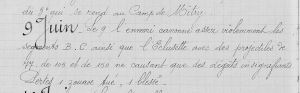 du 8e qui se rend au Camp de Mitry
9 Juin Le 9 l'ennemi canonne assez violemment les
segments B.C. ainsi que l'Eclusette avec des projectiles de
77, de 105 et de 150 ne causant que des dégats insignifiants
Pertes 1 zouave tué, 1 blessé